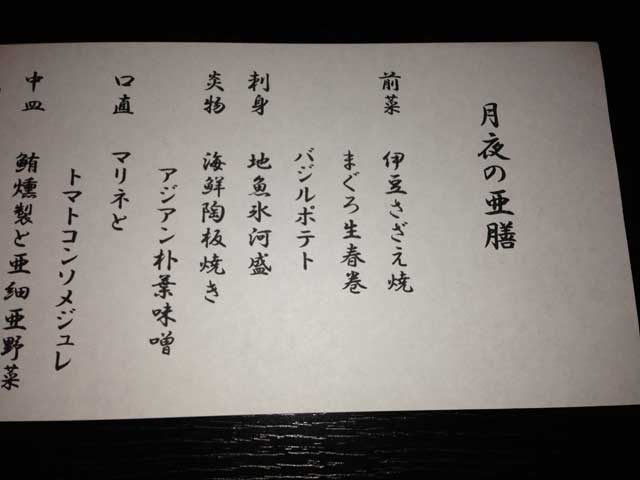 月夜の亜膳
前菜 伊豆さざえ焼
まぐろ生春巻
バジルポテト
刺身 地魚氷河盛
炎物 海鮮陶板焼き
アジアン朴葉味噌
口直 マリネと
トマトコンソメジュレ
中皿 鮪燻製と亜細亜野菜